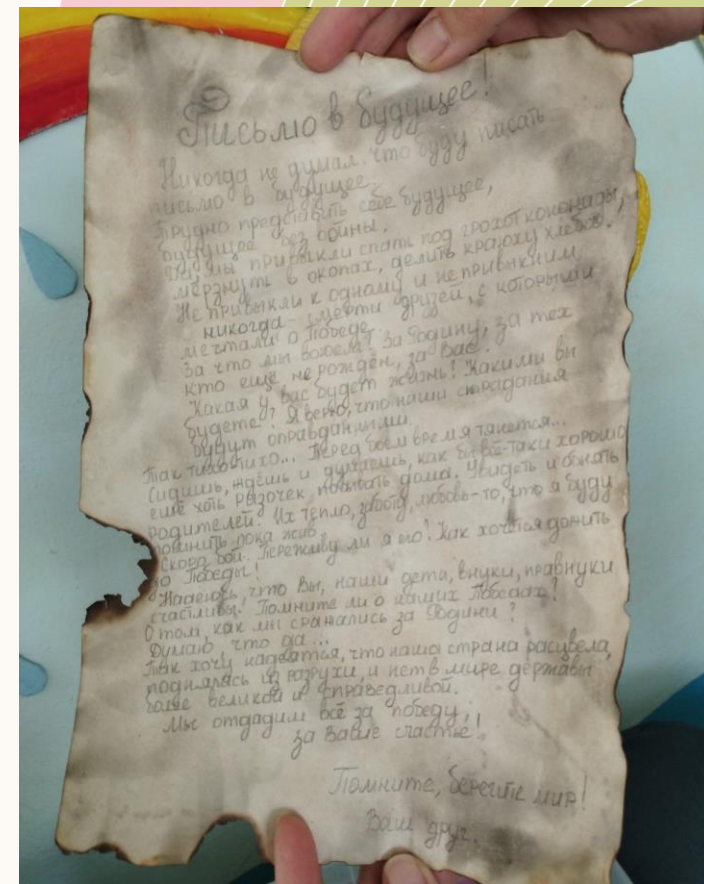 Письмо в будущее!
Никогда не думал, что буду писать
письмо в будущее.
Трудно представить себе будущее,
будущее без войны.
Да, мы привыкли спать под грохот кононады,
мёрзнуть в окопах, делить краюху хлеба.
Не привыкли к одному и не привыкним
никогда - смерти друзей, с которыми
мечтали о Победе.
За что мы воюем? За Родину, за тех
кто ещё не рождён, за Вас.
Какая у вас будет жизнь! Какими вы
будете? Я верю, что наши страдания
будут оправданными.
Так тихо, тихо... Перед боем время тянется...
Сидишь, ждёшь и думаешь, как бы всё-таки хорошо
ещё хоть разочек, побывать дома. Увидеть и обнять
родителей! Их тепло, забота, любовь - то, что я буду
помнить пока жив.
Скоро бой. Переживу ли я его? Как хочется дожить
до Победы!
Надеюсь, что Вы, наши дети, внуки, правнуки
счастливы! Помните ли о наших Победах?
О том, как мы сражались за Родину?
Думаю, что да...
Так хочу надеятся, что наша страна расцвела,
поднялась из разрухи, и нет в мире державы
более великой и справедливой.
Мы отдадим всё за победу,
за Ваше счастье!
Помните, берегите мир!
Ваш друг.